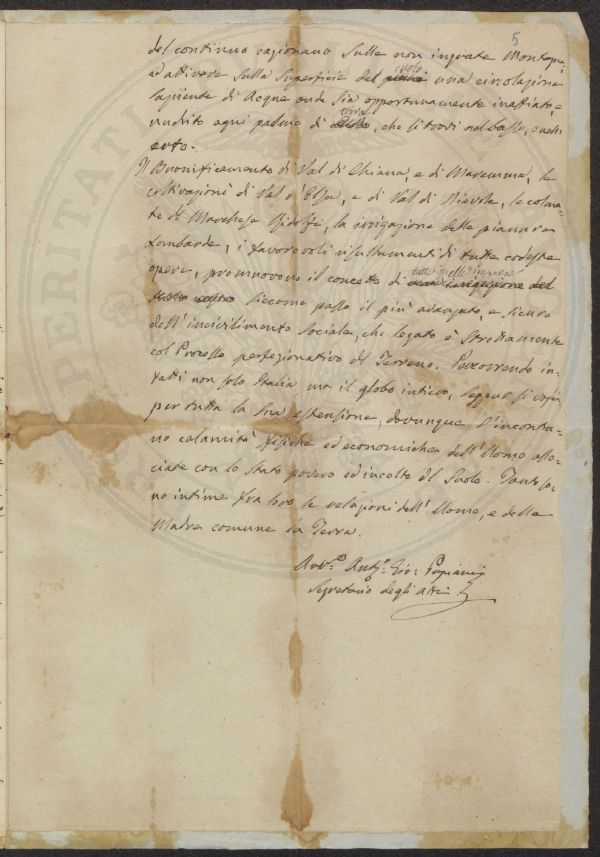 5
del continuo cagionano sulle non ingrate Montagne,
ed attivare sulla superficie del suolo una circolazione
sapiente di Acque onde sia opportunamente inaffiato, e
nudrito ogni palmo di terra, che si trovi nel basso, o nell'
erto.
Il Buonificamento di Val di Chiana, e di Maremma, le
coltivazioni di Val d'Elsa, e di Val di Nievole, le colma-
te del Marchese Ridolfi, la irrigazione delle pianure
Lombarde, i favorevoli risultamenti di tutte codeste
opere, promuovono il concetto di tutte quelle imprese
siccome passo il più adeguato, e sicuro
dell'incivilimento sociale, che legato è strettamente
col Processo perfezionativo del Terreno. Percorrendo in-
fatti non solo Italia ma il globo intiero, seppur si voglia,
per tutta la sua estensione, dovunque s'incontra-
no calamità fisiche ed economiche dell'Uomo asso-
ciate con lo stato povero ed incolto del Suolo. Tanto so-
no intime fra loro le relazioni dell'Uomo, e della
Madre comune la Terra.
Avv.º Ant.º Gio:
Segretario degli Atti